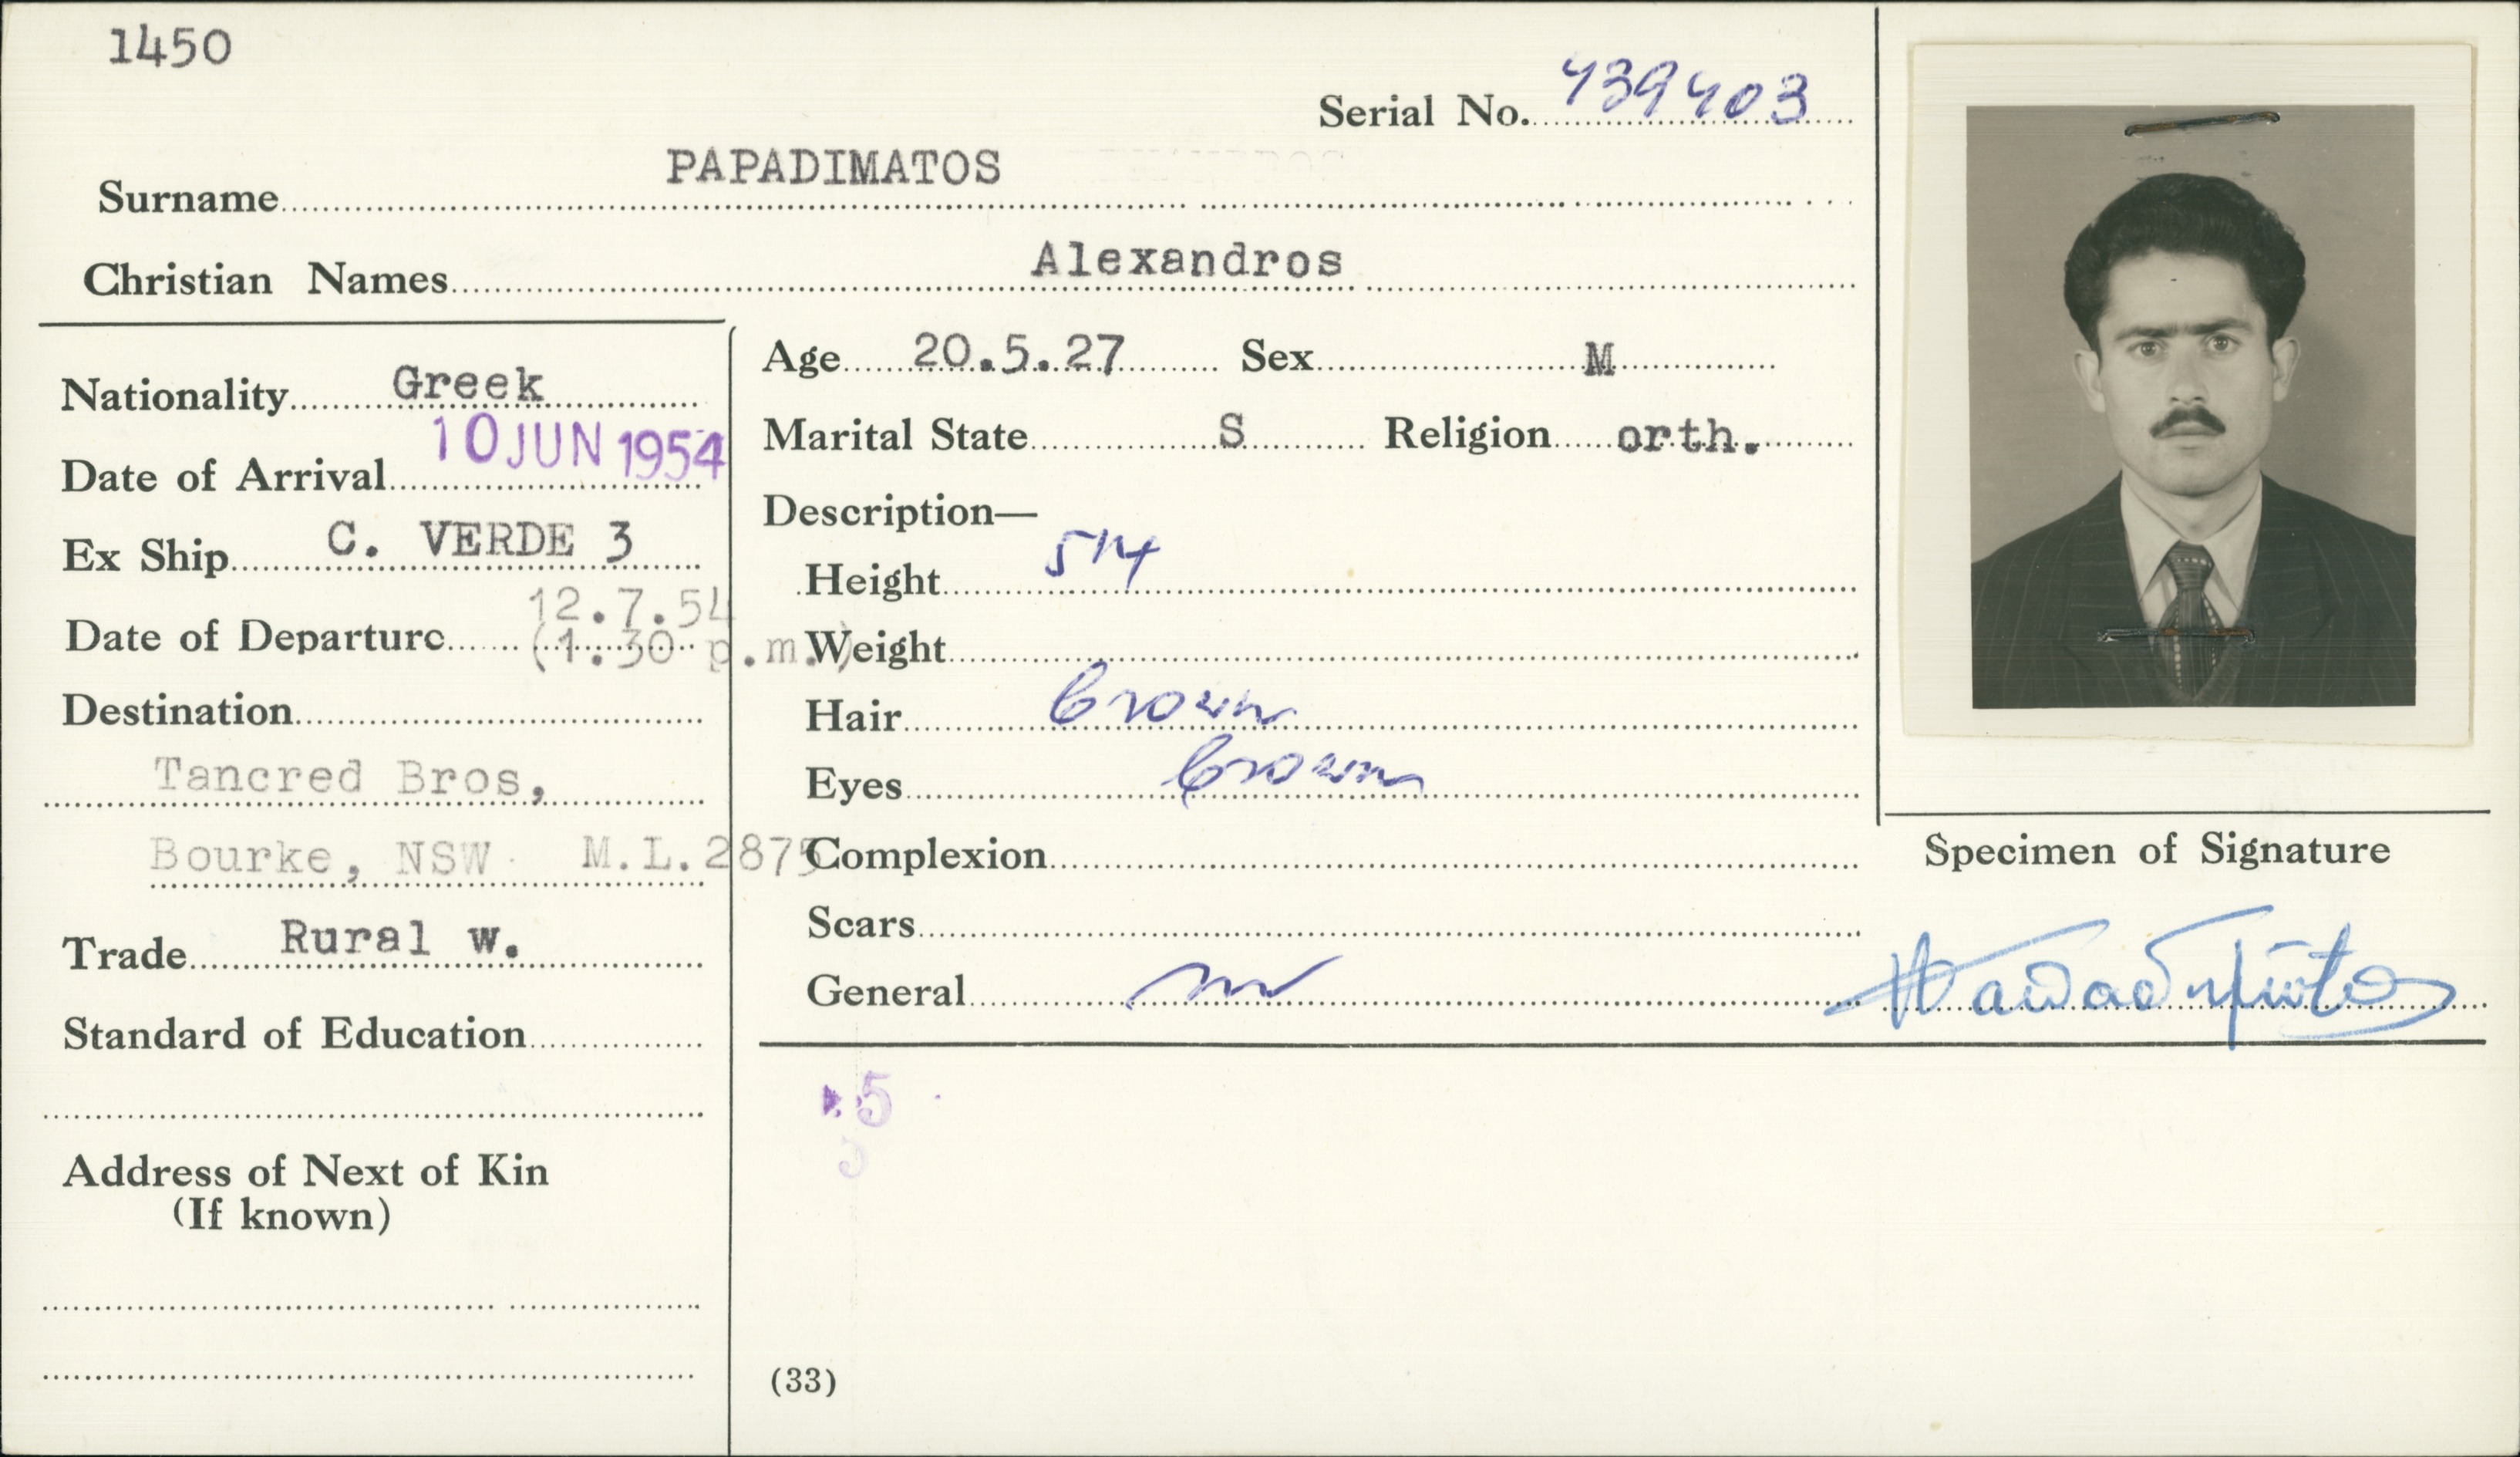 1450
Serial No. 439403
Surname PAPADIMATOS
Christian Names Alexandros
Nationality Greek
Date of Arrival 10 JUN 1954
Ex Ship C. VERDE 3
Date of Departure 12.7.54
(1.30 p.m.)
Destination
Tancred Bros,
Bourke, NSW M.L.2875
Trade Rural w.
Standard of Education
Address of Next of Kin
(If known)
Age 20.5.27 Sex M
Marital State S Religion orth.
Description—
Height
Weight
Hair brown
Eyes brown
Complexion
Scars
General
5
(33)
Specimen of Signature